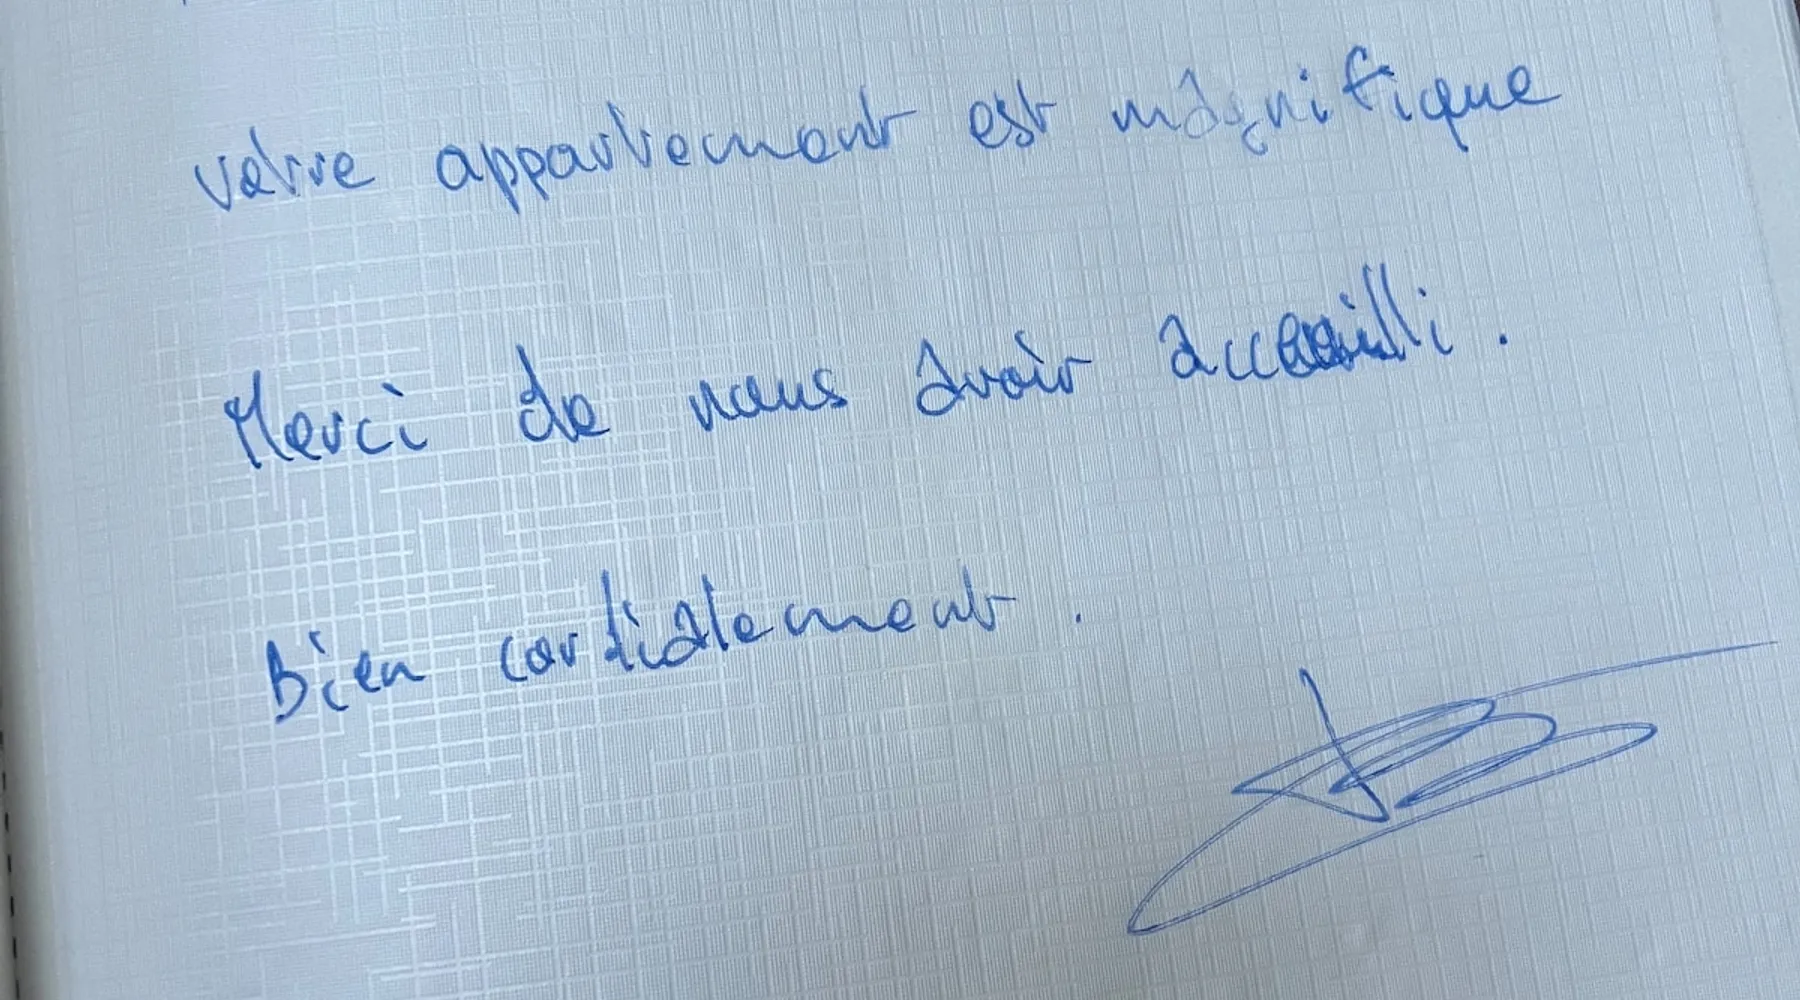 votre appartement est magnifique
Merci de nous avoir accueilli.
Bien cordialement.